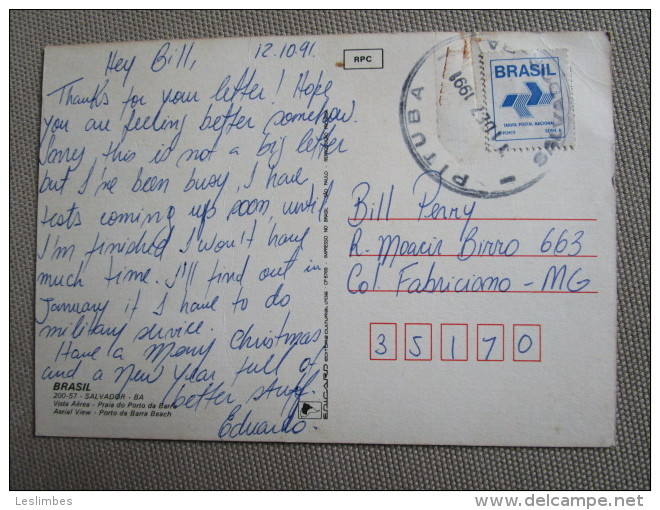 Hey Bill,
12.10.91.
Thanks for your letter! Hope
you are feeling better somehow.
Sorry this is not a big letter
but I've been busy, I have
tests coming up soon, until
I'm finished I won't have
much time. I'll find out in
January if I have to do
military service.
Have a Merry Christmas
and a New Year full of
better stuff.
Eduardo.
BRASIL
200-57 - SALVADOR - BA
Vista Aérea - Praia do Porto da Barra
Aerial View - Porto da Barra Beach
EDICARD EDITORA CULTURAL LTDA
IMPRESSO NO BRASIL
SÃO PAULO
RPC
PITUBA
1991
SALVADOR
BRASIL
TARIFA POSTAL NACIONAL
Bill Perry
R. Moacir Birro 663
Col. Fabriciano - MG
35170
Leslimbes
delcampe.net